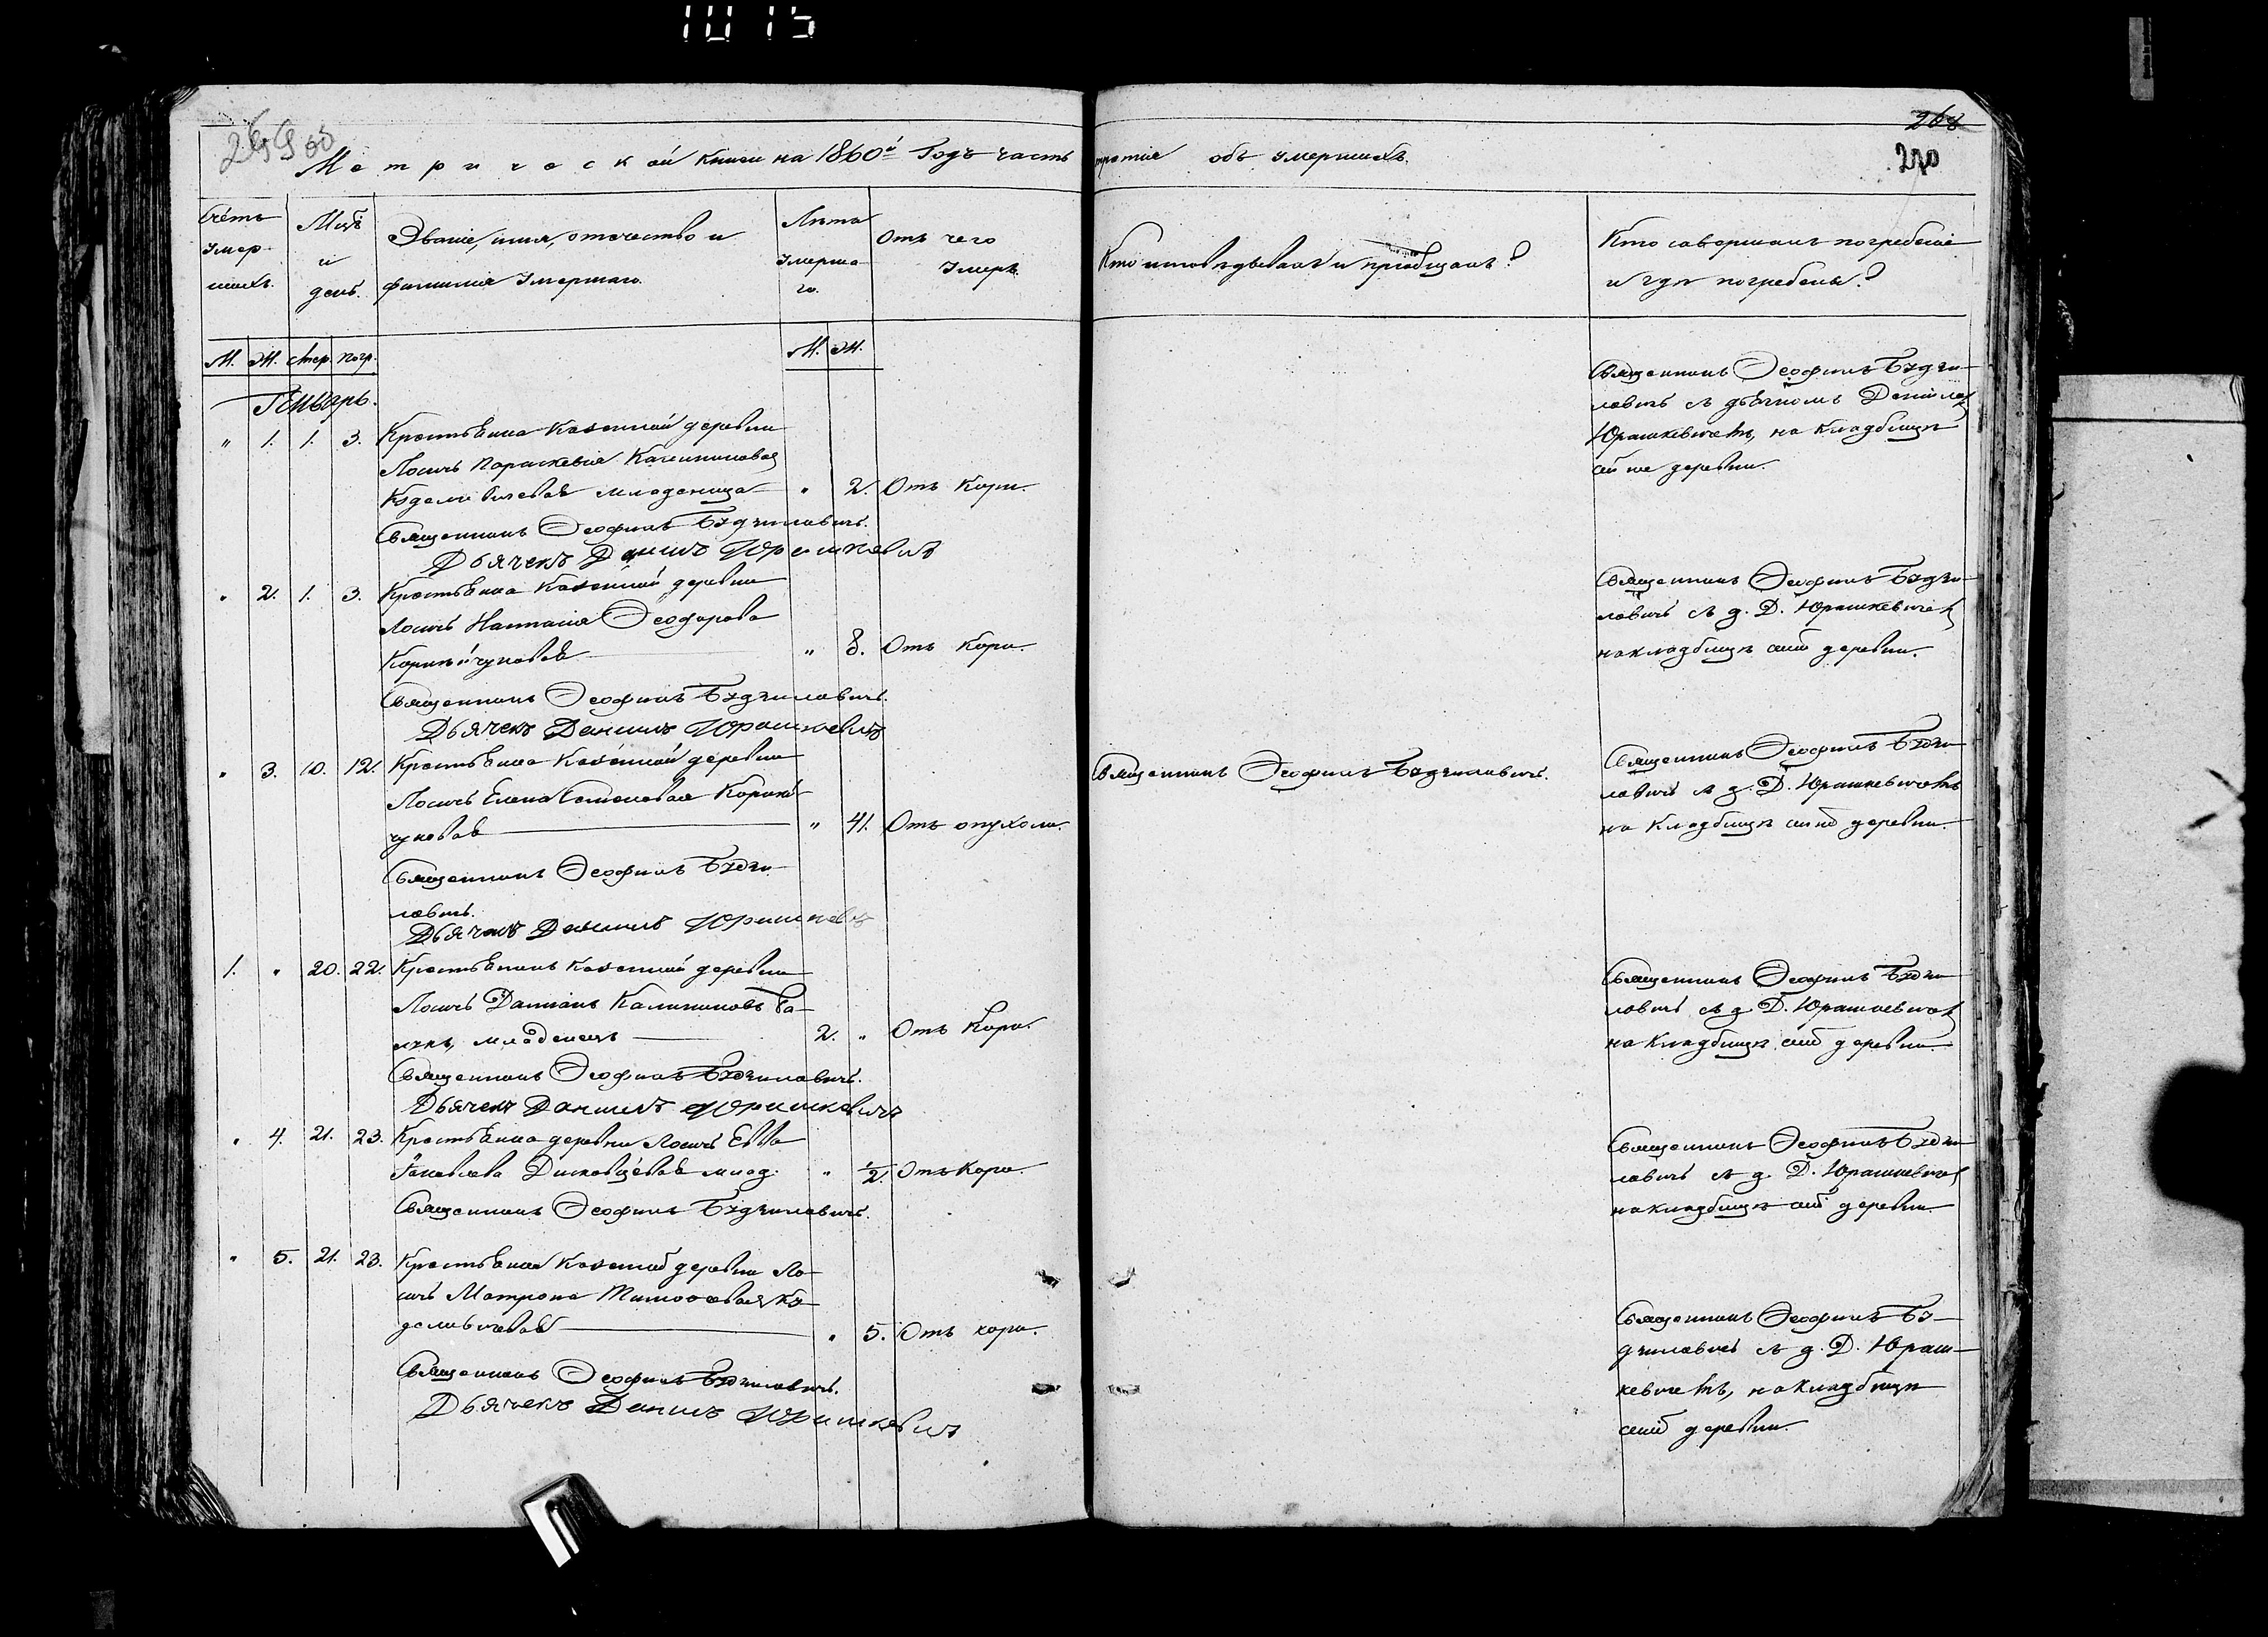 1015
268
270
Метрической книги на 1860й Годъ часть третія объ умершихъ.
Счетъ
Умер-
шихъ.
Мцъ
и
день.
Званіе, имя, отчество и
фамилія Умершаго.
Лѣта
Умерша-
го.
Отъ чего
Умеръ.
Кто исповѣдывалъ и пріобщалъ?
Кто совершалъ погребеніе
и гдѣ погребены?
М. Ж. Умер. Погр.
М. Ж.
Генварь.
" 1. 1. 3. Крестьянка Казенной деревни
Лосичь Параскевія Калиникова
младеница " 2. Отъ Кори.
Священникъ Ѳеофилъ Будзиловичъ.
Дьячекъ Данилъ Юрашкевичъ
Священникъ Ѳеофилъ Будзи-
ловичъ съ дьячкомъ Даніиломъ
Юрашкевичемъ, на Кладбищѣ
сей же деревни.
" 2. 1. 3. Крестьянка Казенной деревни
Лосичь Наталія Ѳеодорова
" 8. Отъ Кори.
Священникъ Ѳеофилъ Будзиловичъ.
Дьячекъ Данилъ Юрашкевичъ
Священникъ Ѳеофилъ Будзи-
ловичъ съ д. Д. Юрашкевичемъ
на кладбищѣ сей деревни.
" 3. 10. 12. Крестьянка Казенной деревни
Лосичь Елена
" 41. Отъ опухоли.
Священникъ Ѳеофилъ Будзи-
ловичъ.
Дьячекъ Данилъ Юрашкевичъ
Священникъ Ѳеофилъ Будзиловичъ.
Священникъ Ѳеофилъ Будзи-
ловичъ съ д. Д. Юрашкевичемъ
на Кладбищѣ сей деревни.
1. " 20. 22. Крестьянинъ Казенной деревни
Лосичь Даміанъ Калиниковъ
младенецъ 2. " Отъ Кори.
Священникъ Ѳеофилъ Будзиловичъ.
Дьячекъ Данилъ Юрашкевичъ
Священникъ Ѳеофилъ Будзи-
ловичъ съ д. Д. Юрашкевичемъ
на Кладбищѣ сей деревни.
" 4. 21. 23. Крестьянка деревни Лосичь Евва
Яковлева млад. " 1/2. Отъ Кори.
Священникъ Ѳеофилъ Будзиловичъ.
Священникъ Ѳеофилъ Будзи-
ловичъ съ д. Д. Юрашкевичемъ
на кладбищѣ сей деревни.
" 5. 21. 23. Крестьянка Казенной деревни Ло-
сичь Матрона
" 5. Отъ кори.
Священникъ Ѳеофилъ Будзиловичъ.
Дьячекъ Данилъ Юрашкевичъ
Священникъ Ѳеофилъ Бу-
дзиловичъ съ д. Д. Юраш-
кевичемъ, на Кладбищѣ
сей деревни.